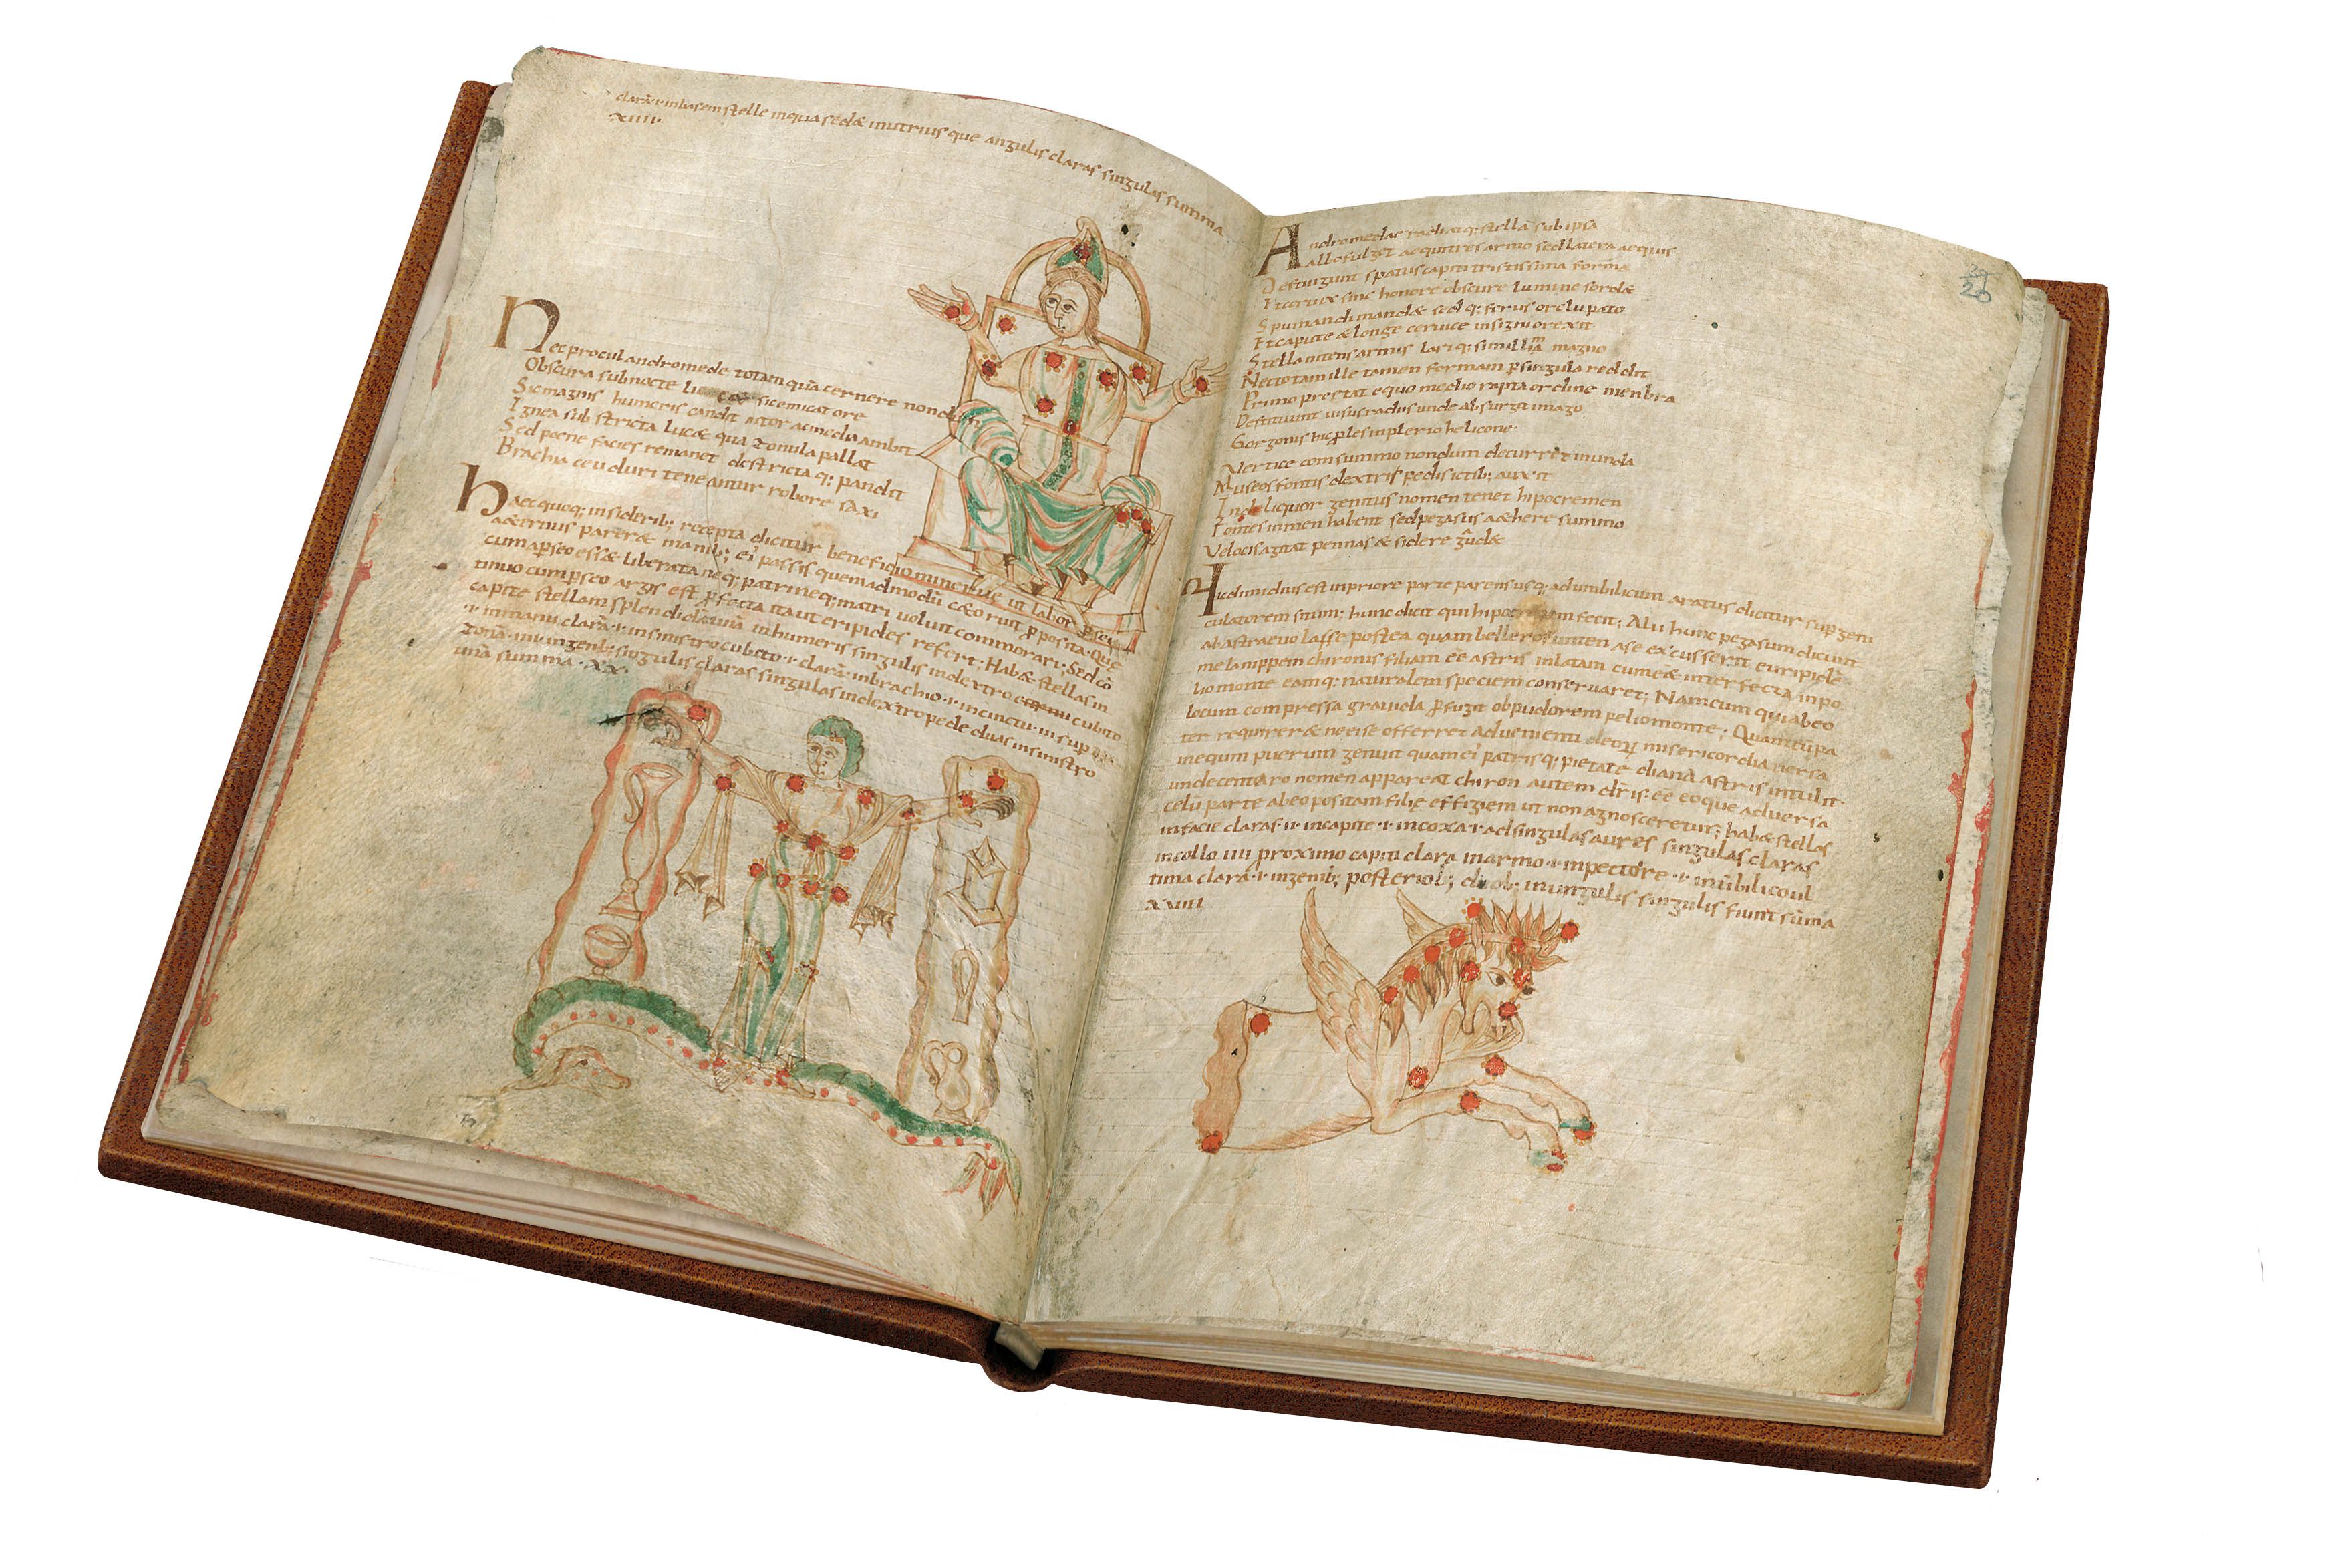 clarā·i· inbasem stelle inqua sedæ inutrius que angulis claras singulas summa
·XIIII·
Nec procul andromede totam quā cernere nondū
Obscura subnocte sic emicat ore
Sic magnis humeris candit nitor ac media ambit
Ignea sub stricta lucæ qua Zonula palla
Sed poene facies remanet destricta q; pandit
Brachia ceu duri teneantur robore saxi
haec quoq; insiderib; recepta dicitur beneficio minerue ut labor persei
aeternus pareræ manib; ei passis quemadmodū cæto ruit pposita· Que
cum perseo essæ liberata neq; patri neq; matri voluit commorari· Sed cō
tinuo cum perseo argis est pfecta ita ut eripides refert; Habæ stellas in
capite stellam splendidā unā inhumeris singulis indextro cubito
·i· inmanu clarā·i· insinistro cubito·i· clarā· inbrachio·i· incinctu· iii sup
Zonā·iiii· ingenib; singulis claras singulas indextro pede duas insinistro
unā summa·XX·
39
20
Andromedae radiat q; stella sub ipsa
allo fulget aequi tres armo sed latera aequis
Destingunt spatiis capiti tristissima forma
Et ceruix sine honore obscure lumine sordæ
Spumandi mandæ sed q; ferus ore lupato
Et capite & longe ceruice insignior exit
Stella nitens armis lari q; simillima magno
Nec totam ille tamen formam psingula reddit
Primo prestat equo medio rapta ordine menbra
Destituunt uisus radiis unde absurgit imago
Gorgonis hic ples inplerio helicone·
Vertice com summo nondum decurrer& munda
Museos fontis dextris pedis ictib; auxit
Inde liquor genitus nomen tenet hipocremen
Fontes inmen habent sed pegasus aæhere summo
Velocis agitat pennas & sidere gaudæ
Hic dimidius est in priore parte parens usq; ad umbilicum aratus dicitur supgem
culatorem situm; hunc dicit qui hipocrenem fecit; Alii hunc pegasum dicunt
ab astra euolasse postea quam bellerofonten a se excusserit euripides
melanippem chironis filiam eē astris inlatam cum eæ interfecta in pe
lio monte eamq; naturalem speciem conseruaret; Nam cum qui abeo
locum compressa grauida pfugit ob pudorem pelio monte; Quam cū pa
ter requirer& ne eise offerret aduenienti deorū misericordia uersa
in equum puerum genuit quam ei patris q; pietate diana astris intulit·
unde centauro nomen appareat chiron autem dīs· eē eoque aduersa
celū parte abeo positam filie effigiem ut non agnosceretur; habæ stellas
infacie claras·ii· incapite·i· incoxa·i· adsingulas aures singulas claras
incollo iiii proximo capiti clara inarmo·i· inpectore·i· inūbilico ul
tima clarā·i· ingenib; posteriob; duob; in ungulis singulis fiunt sūma
XVIII